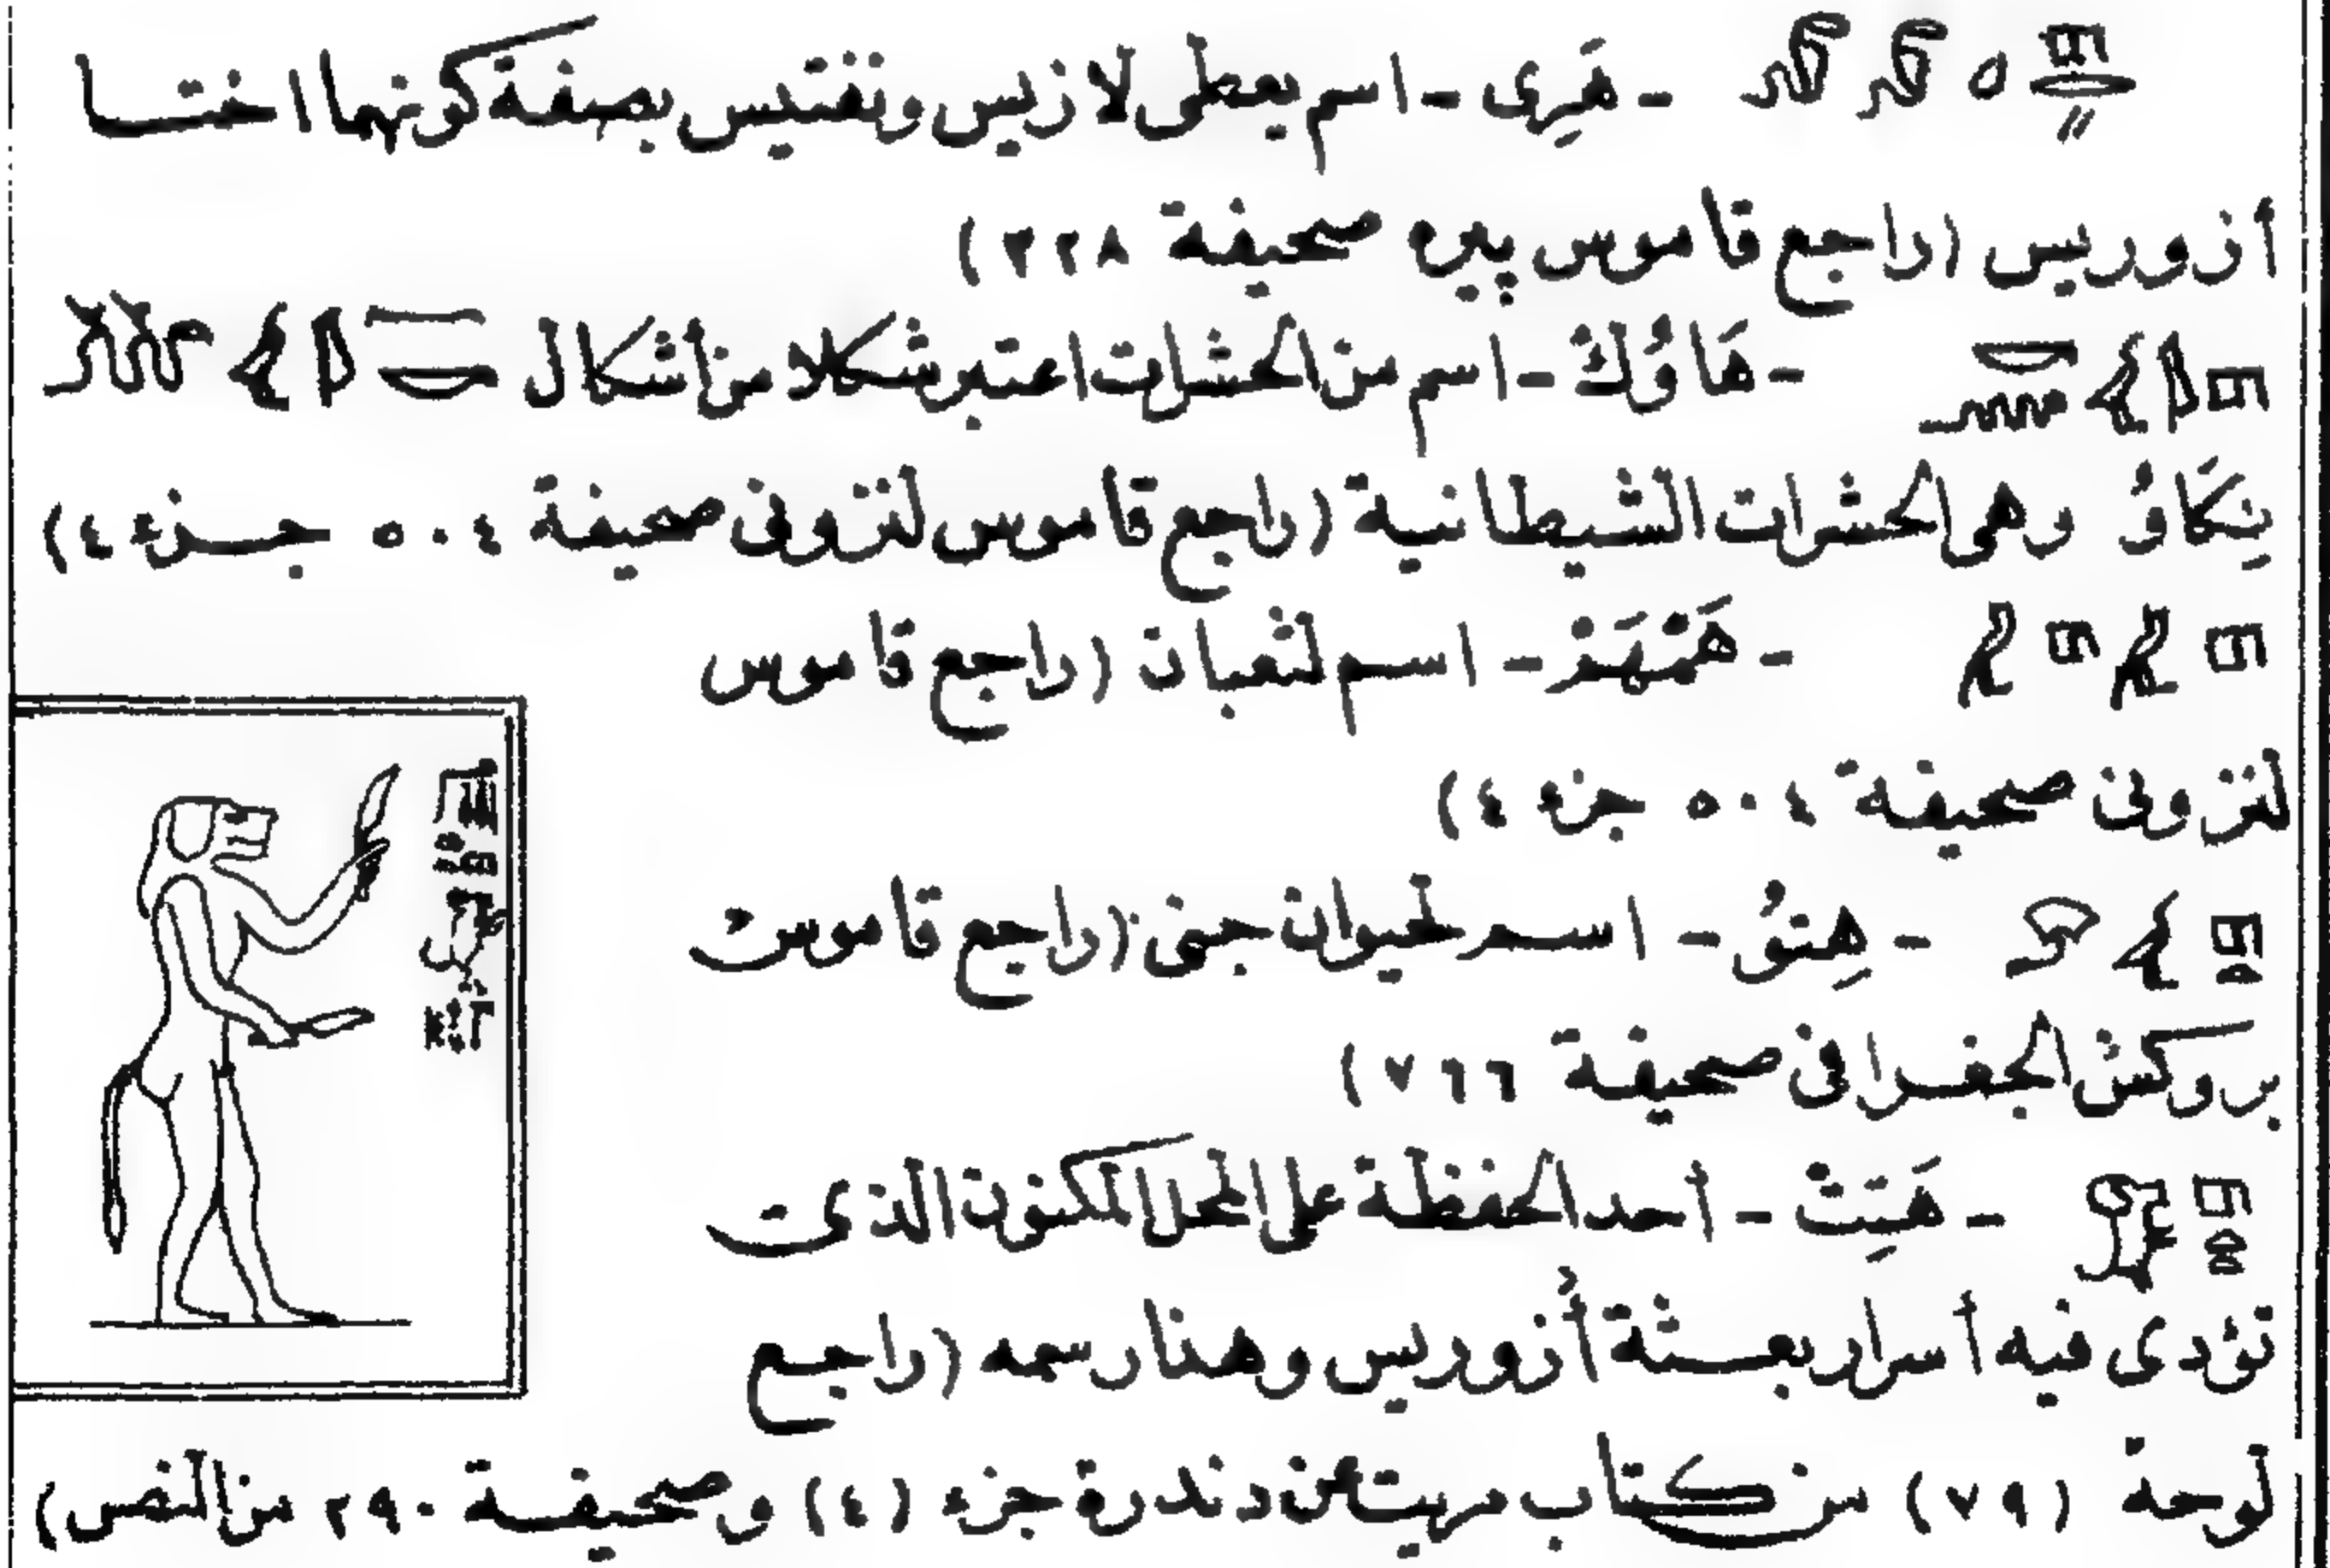 - هَرِى - اسم يعطى لازيس ونفتيس بصفة كونهما اختا
أزوريس (راجع قاموس پيره صحيفة ٣٢٨)
- هَا وُكْ - اسم من الحشرات اعتبر شكلا من أشكال
نِكَاوُ وهى الحشرات الشيطانية (راجع قاموس لنزونى صحيفة ٥٠٤ جزء ٤)
- هَمْهَمْ - اسم لثعبان (راجع قاموس
لنزونى صحيفة ٥٠٤ جزء ٤)
- هِتوُ - اسم لحيوان جنى (راجع قاموس
بروكش الجغرافى صحيفة ٧٦٦)
- هَتِتْ - أحد الحفظة على المحل المكنون الذى
تؤدى فيه أسرار بعثة أُزوريس وهنا رسمه (راجع
لوحة (٧٩) من كتاب مريت عن دندرة جزء (٤) وصحيفة ٢٩٠ من النص)